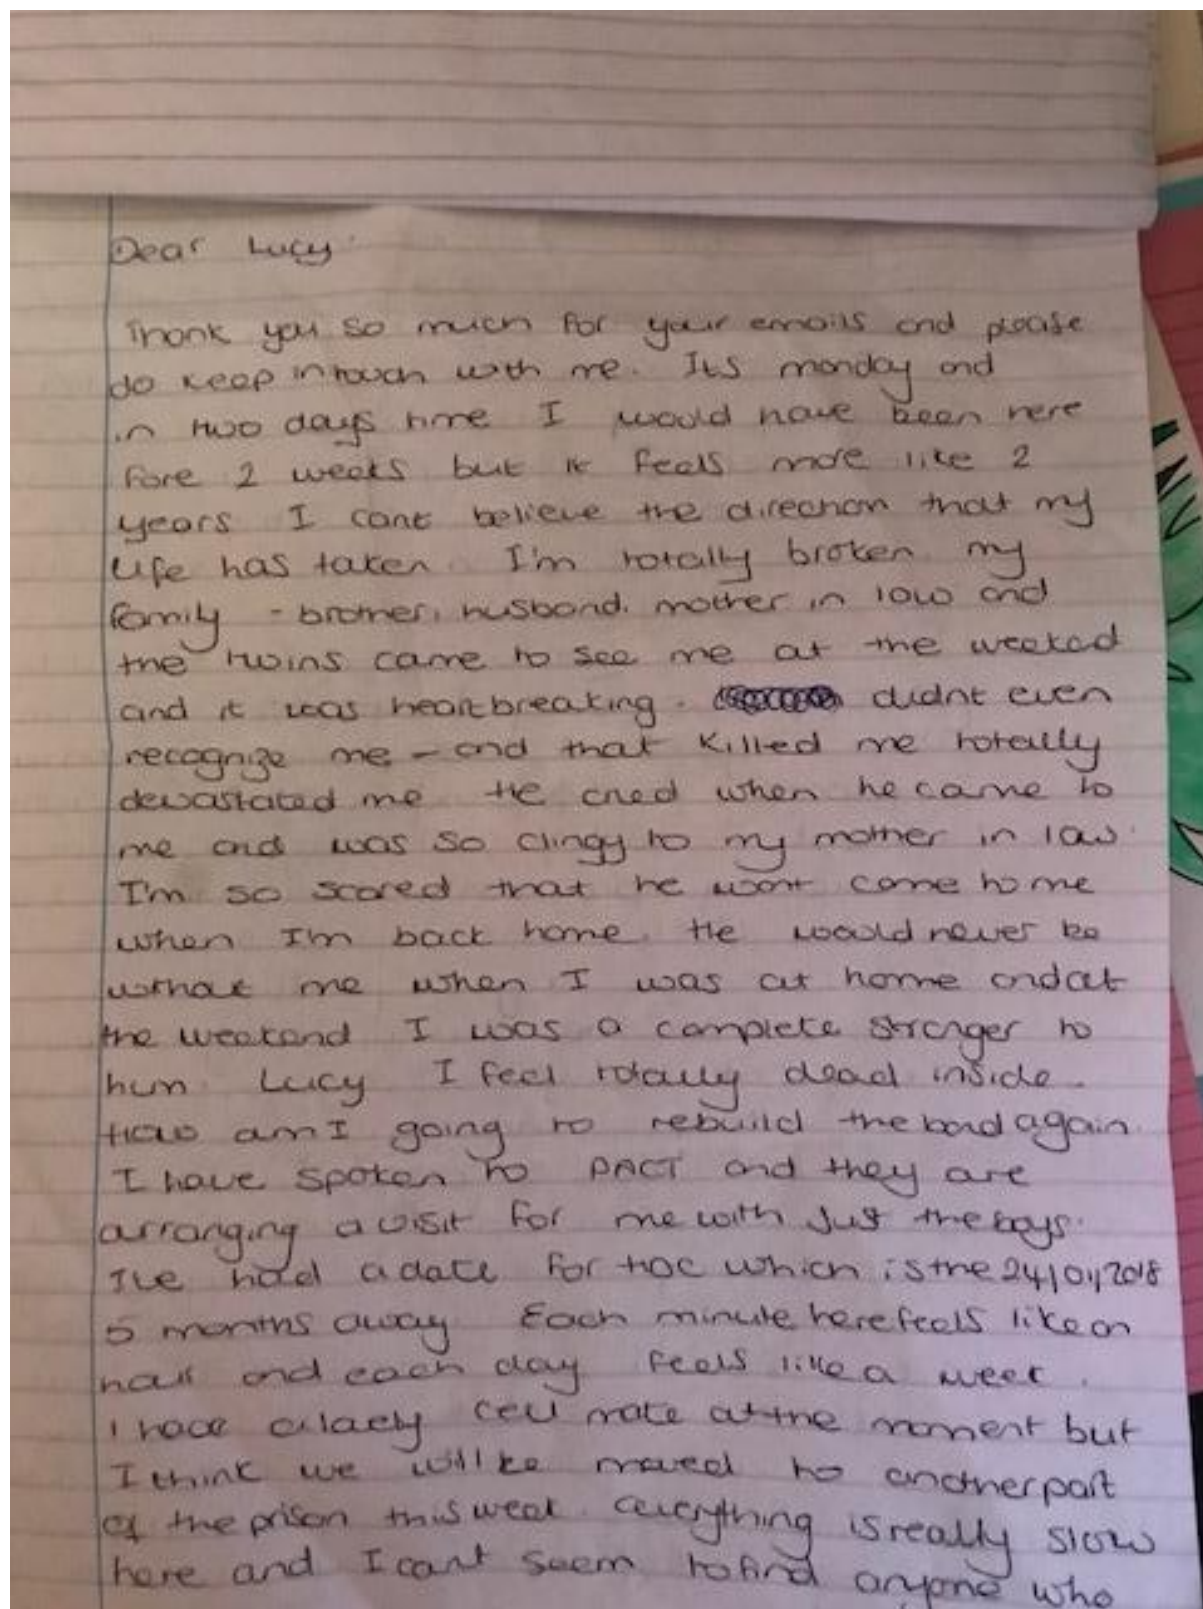 Dear Lucy
Thank you so much for your emails and please
do keep in touch with me. Its monday and
in two days time I would have been here
fore 2 weeks but it feels more like 2
years I cant believe the direction that my
life has taken. I'm totally broken my
family - brother, husband, mother in law and
the twins came to see me at the weekend
and it was heartbreaking. didnt even
recognize me - and that killed me totally
devastated me He cried when he came to
me and was so clingy to my mother in law.
I'm so scared that he wont come to me
when I'm back home. He would never be
without me when I was at home and at
the weekend I was a complete stranger to
him Lucy I feel totally dead inside.
How am I going to rebuild the bond again.
I have spoken to PACT and they are
arranging a visit for me with just the boys.
I've had a date for HDC which is the 24/01/2018
5 months away Each minute here feels like an
hour and each day feels like a week.
I have a lady cell mate at the moment but
I think we will be moved to another part
of the prison this week. everything is really slow
here and I cant seem to find anyone who